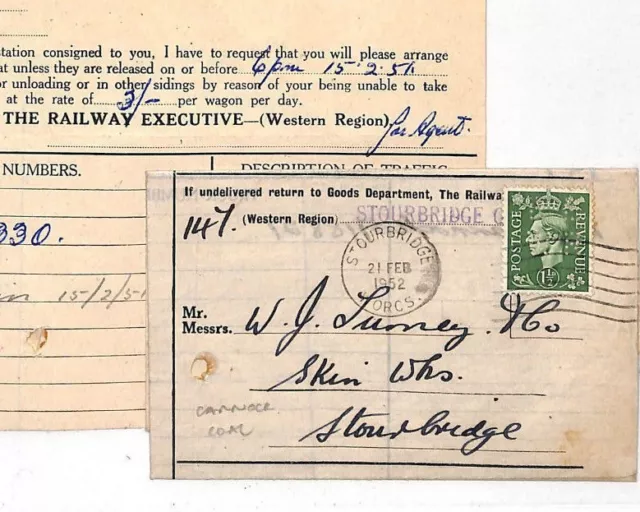 station consigned to you, I have to request that you will please arrange
at unless they are released on or before 6pm 15.2.51
or unloading or in other sidings by reason of your being unable to take
at the rate of 3/- per wagon per day.
THE RAILWAY EXECUTIVE—(Western Region) for Agent.
NUMBERS.
DESCRIPTION OF TRAFFIC
330.
15/2/51
If undelivered return to Goods Department, The Railwa
147. (Western Region) STOURBRIDGE
STOURBRIDGE
21 FEB
1952
WORCS.
POSTAGE
REVENUE
1½D
Mr.
Messrs. W. J. Turney & Co
Skin Whs.
Stourbridge
CANNOCK
COAL